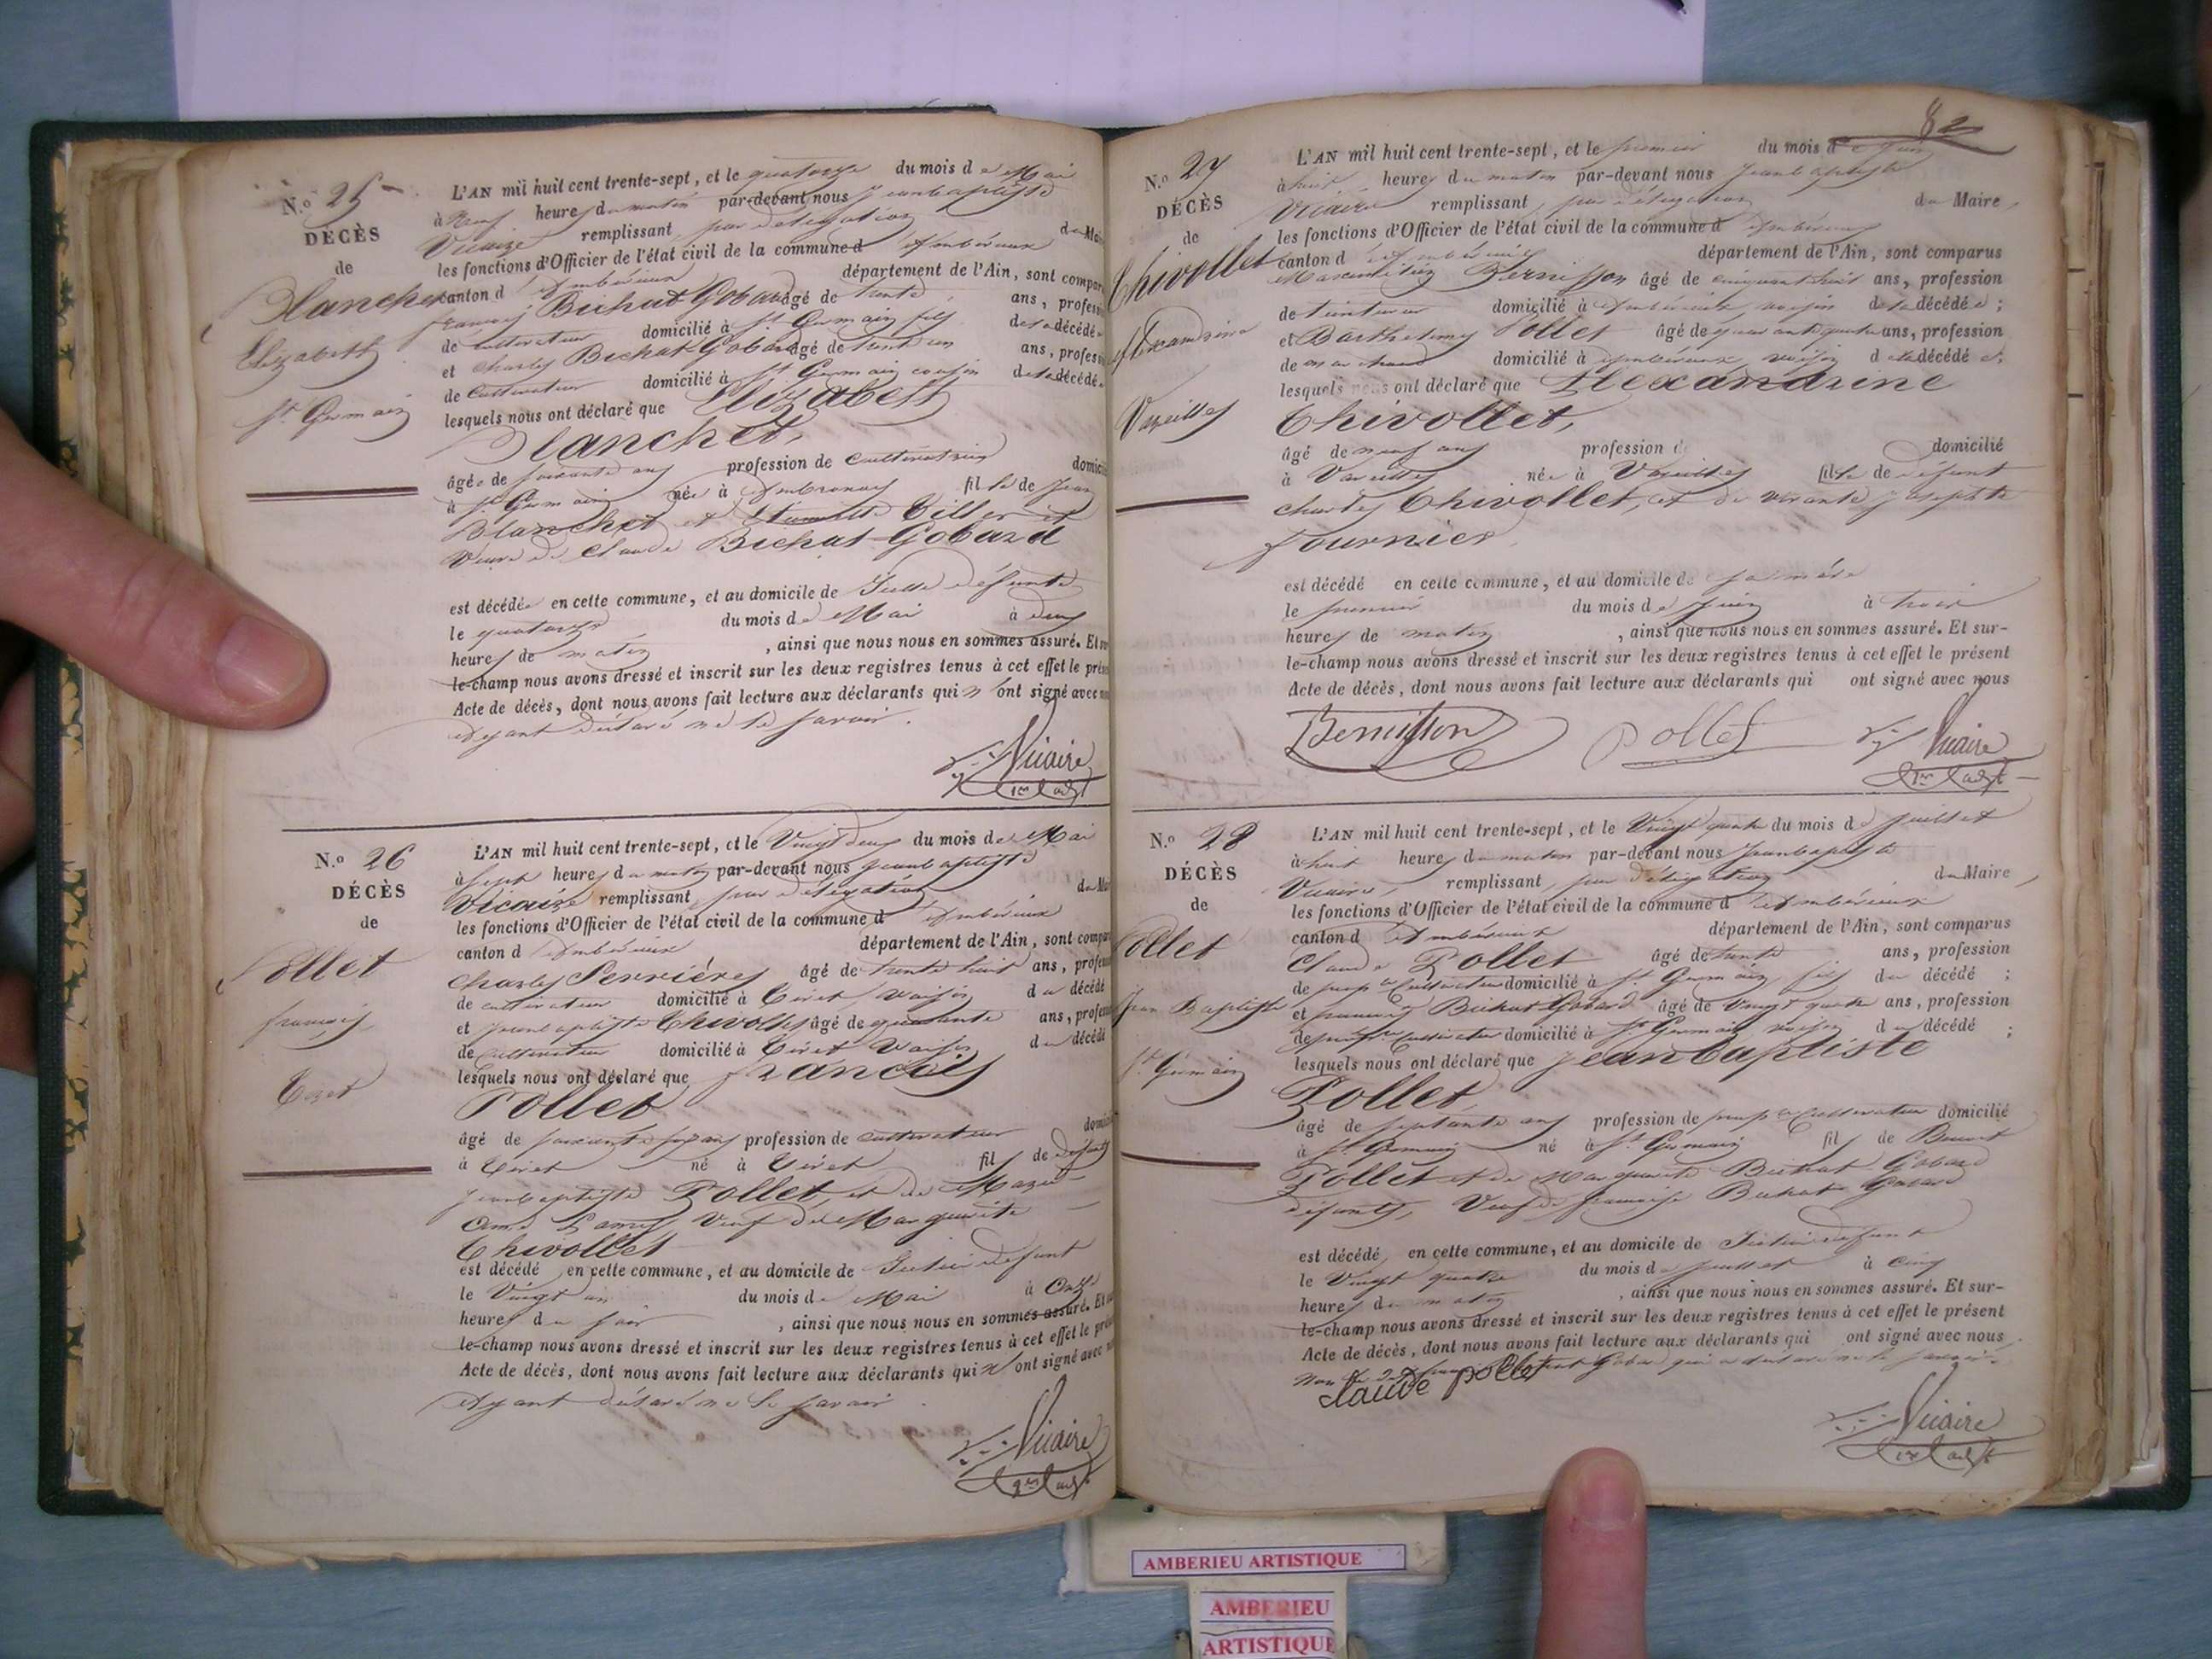 N.º 25
DÉCÈS
de
Planchet
Elizabeth
St Germain
L'AN mil huit cent trente-sept, et le quatorze du mois de Mai
à neuf heures du matin par-devant nous Jeanbaptiste
Vicaire remplissant par délégation du Mai
les fonctions d'Officier de l'état civil de la commune d'Ambérieux
canton d'Ambérieux département de l'Ain, sont compar
françois Bichat Gobard âgé de trente ans, profess
de cultivateur domicilié à St Germain fils de la décédée
et Charles Bichat-Gobard âgé de trente un ans, profess
de Cultivateur domicilié à St Germain cousin de la décédée
lesquels nous ont déclaré que Elizabeth
Planchet,
âgée de soixante ans profession de Cultivatrice domici
à St Germain née à Ambronay fille de Jean
Blanchet et Tiller et
Veuve de Claude Bichat-Gobard
est décédée en cette commune, et au domicile de defunte
le quatorze du mois de Mai à deux
heures de matin, ainsi que nous nous en sommes assuré. Et su
le-champ nous avons dressé et inscrit sur les deux registres tenus à cet effet le prés
Acte de décès, dont nous avons fait lecture aux déclarants qui n'ont signé avec no
Ayant déclaré ne le savoir.
Vicaire
N.º 26
DÉCÈS
de
Pollet
françois
Tiret
L'AN mil huit cent trente-sept, et le Vingt deux du mois de Mai
à sept heures du matin par-devant nous Jeanbaptiste
Vicaire remplissant par délégation du Mai
les fonctions d'Officier de l'état civil de la commune d'Ambérieux
canton d'Ambérieux département de l'Ain, sont compar
Charles Serrières âgé de trente huit ans, profess
de cultivateur domicilié à Tiret Voisin du décédé
et Jeanbaptiste Chivollet âgé de quarante ans, profess
de Cultivateur domicilié à Tiret Voisin du décédé
lesquels nous ont déclaré que françois
Pollet
âgé de soixante ans profession de cultivateur domici
à Tiret né à Tiret fils de défunt
Jeanbaptiste Pollet, et de Marie
Veuf de Marguerite
Chivollet
est décédé en cette commune, et au domicile de defunt
le Vingt un du mois de Mai à onze
heures du soir, ainsi que nous nous en sommes assuré. Et su
le-champ nous avons dressé et inscrit sur les deux registres tenus à cet effet le prés
Acte de décès, dont nous avons fait lecture aux déclarants qui n'ont signé avec no
Ayant déclaré ne le savoir.
Vicaire
82
N.º 27
DÉCÈS
de
Chivollet
Alexandrine
Vareilles
L'AN mil huit cent trente-sept, et le premier du mois de Juin
à huit heures du matin par-devant nous Jeanbaptiste
Vicaire remplissant par délégation du Maire,
les fonctions d'Officier de l'état civil de la commune d'Ambérieux
canton d'Ambérieux département de l'Ain, sont comparus
Maximilien Bernisson âgé de cinquante huit ans, profession
de teinturier domicilié à Ambérieux voisin de la décédée;
et Barthelemy Pollet âgé de quarante quatre ans, profession
de marchand domicilié à Ambérieux voisin de la décédée;
lesquels nous ont déclaré que Alexandrine
Chivollet,
âgé de neuf ans profession d domicilié
à Vareilles née à Vareilles fille de défunt
Charles Chivollet, et de vivante Josephte
Fournier
est décédé en cette commune, et au domicile de sa mère
le premier du mois de Juin à trois
heures de matin, ainsi que nous nous en sommes assuré. Et sur-
le-champ nous avons dressé et inscrit sur les deux registres tenus à cet effet le présent
Acte de décès, dont nous avons fait lecture aux déclarants qui ont signé avec nous
Bernisson Pollet Vicaire
N.º 28
DÉCÈS
de
Pollet
Jean Baptiste
St Germain
L'AN mil huit cent trente-sept, et le Vingt quatre du mois de Juillet
à huit heures du matin par-devant nous Jeanbaptiste
Vicaire, remplissant par délégation du Maire,
les fonctions d'Officier de l'état civil de la commune d'Ambérieux
canton d'Ambérieux département de l'Ain, sont comparus
Claude Pollet âgé de trente ans, profession
de prop.re Cultivateur domicilié à St Germain, fils du décédé;
et françois Bichat Gobard âgé de Vingt quatre ans, profession
de prop.re Cultivateur domicilié à St Germain voisin du décédé;
lesquels nous ont déclaré que Jeanbaptiste
Pollet,
âgé de septante ans profession de prop.re Cultivateur domicilié
à St Germain né à St Germain fils de Benoit
Pollet et de Marguerite Bichat Gobard
défunts, Veuf de françoise Bichat Gobard
est décédé en cette commune, et au domicile de defunt
le Vingt quatre du mois de Juillet à cinq
heures du matin, ainsi que nous nous en sommes assuré. Et sur-
le-champ nous avons dressé et inscrit sur les deux registres tenus à cet effet le présent
Acte de décès, dont nous avons fait lecture aux déclarants qui ont signé avec nous
Gobard qui a déclaré ne le savoir
Claude pollet
Vicaire
AMBERIEU ARTISTIQUE
AMBERIEU
ARTISTIQUE